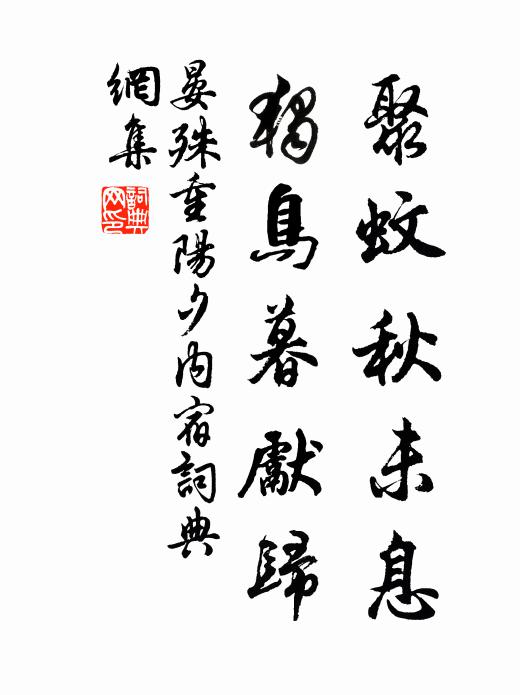 聚蚊秋未息
獨鳥暮獻歸
晏殊重陽夕內宿詞典
網集
詞典網印